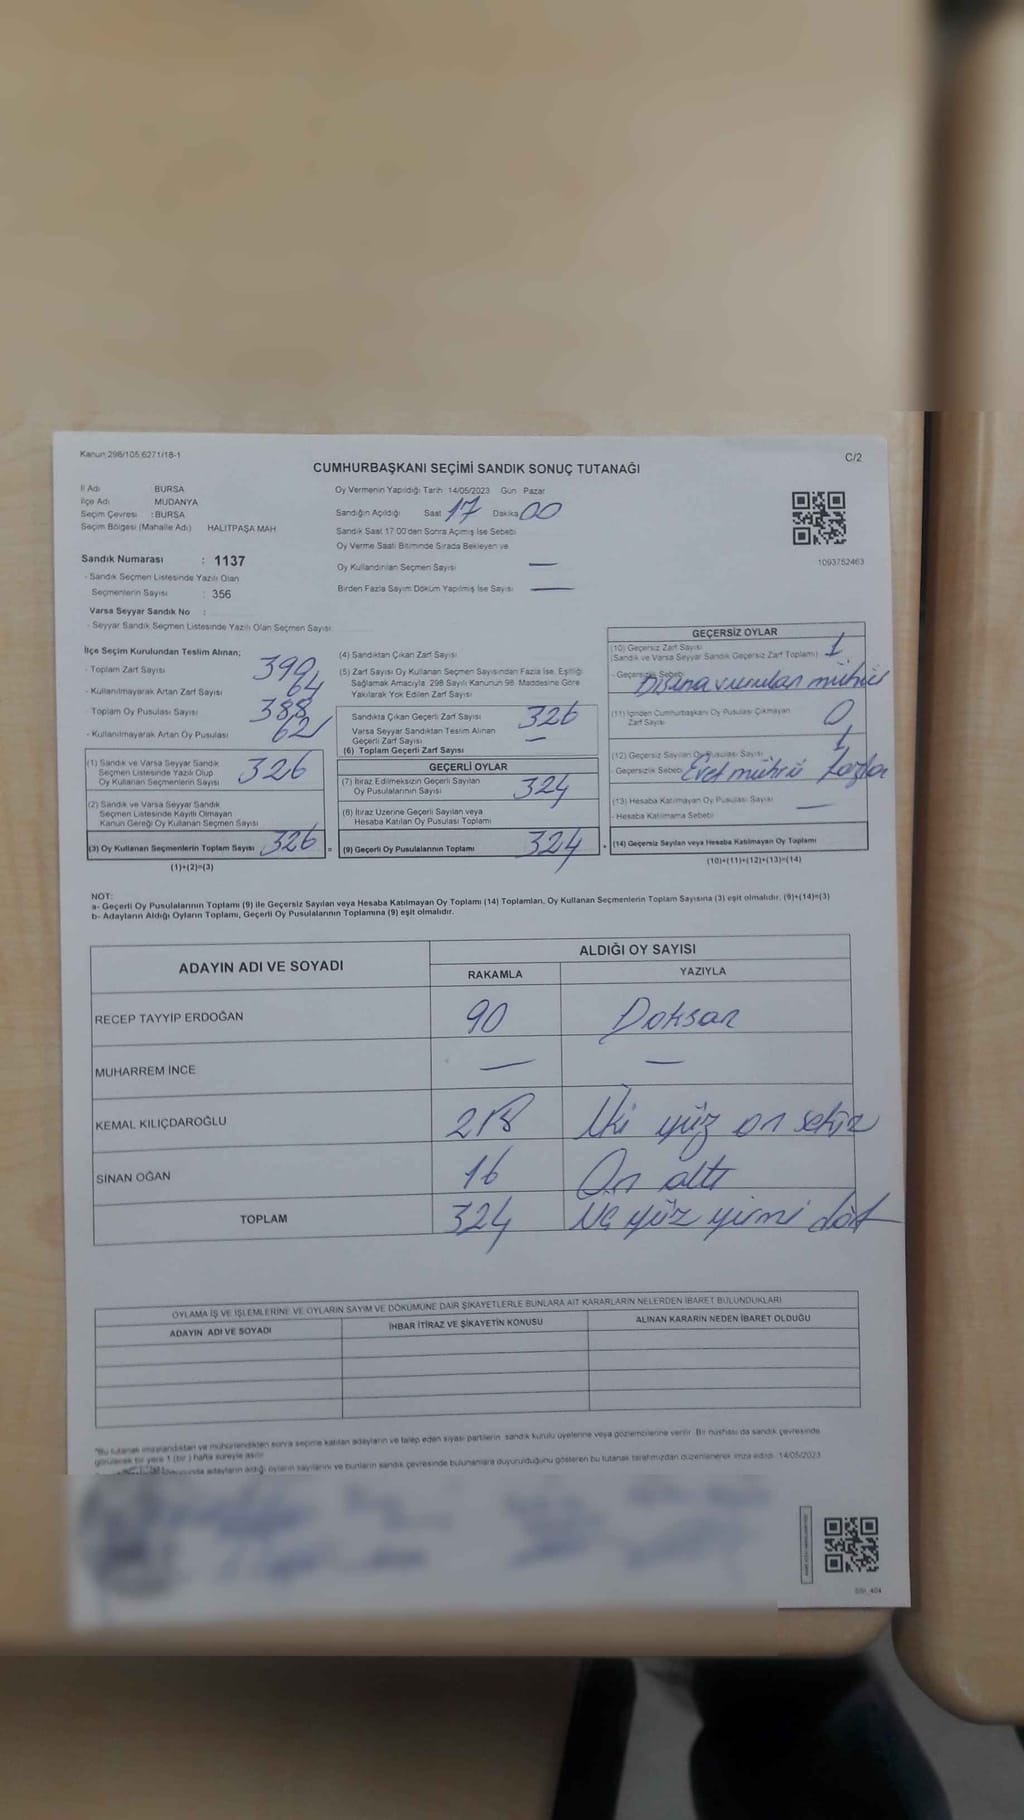 Kanun 298/105,6271/18-1
C/2
CUMHURBAŞKANI SEÇİMİ SANDIK SONUÇ TUTANAĞI
İl Adı BURSA
İlçe Adı MUDANYA
Seçim Çevresi : BURSA
Seçim Bölgesi (Mahalle Adı) HALİTPAŞA MAH
Sandık Numarası : 1137
- Sandık Seçmen Listesinde Yazılı Olan
Seçmenlerin Sayısı : 356
Varsa Seyyar Sandık No :
- Seyyar Sandık Seçmen Listesinde Yazılı Olan Seçmen Sayısı
Oy Vermenin Yapıldığı Tarih 14/05/2023 Gün Pazar
Sandığın Açıldığı Saat 17 Dakika 00
Sandık Saat 17:00'den Sonra Açılmış İse Sebebi
Oy Verme Saati Bitiminde Sırada Bekleyen ve
Oy Kullandırılan Seçmen Sayısı —
Birden Fazla Sayım Döküm Yapılmış İse Sayısı —
1093752463
İlçe Seçim Kurulundan Teslim Alınan;
- Toplam Zarf Sayısı 390
- Kullanılmayarak Artan Zarf Sayısı 64
- Toplam Oy Pusulası Sayısı 388
- Kullanılmayarak Artan Oy Pusulası 62
(1) Sandık ve Varsa Seyyar Sandık
Seçmen Listesinde Yazılı Olup
Oy Kullanan Seçmenlerin Sayısı 326
(2) Sandık ve Varsa Seyyar Sandık
Seçmen Listesinde Kayıtlı Olmayan
Kanun Gereği Oy Kullanan Seçmen Sayısı
(3) Oy Kullanan Seçmenlerin Toplam Sayısı 326 =
(1)+(2)=(3)
(4) Sandıktan Çıkan Zarf Sayısı
(5) Zarf Sayısı Oy Kullanan Seçmen Sayısından Fazla İse, Eşitliği
Sağlamak Amacıyla, 298 Sayılı Kanunun 98. Maddesine Göre
Yakılarak Yok Edilen Zarf Sayısı
Sandıkta Çıkan Geçerli Zarf Sayısı 326
Varsa Seyyar Sandıktan Teslim Alınan
Geçerli Zarf Sayısı —
(6) Toplam Geçerli Zarf Sayısı
GEÇERLİ OYLAR
(7) İtiraz Edilmeksizin Geçerli Sayılan
Oy Pusulalarının Sayısı 324
(8) İtiraz Üzerine Geçerli Sayılan veya
Hesaba Katılan Oy Pusulası Toplamı
(9) Geçerli Oy Pusulalarının Toplamı 324 +
GEÇERSİZ OYLAR
(10) Geçersiz Zarf Sayısı
(Sandık ve Varsa Seyyar Sandık Geçersiz Zarf Toplamı) 1
- Geçersizlik Sebebi Dışına vurulan mühür
(11) İçinden Cumhurbaşkanı Oy Pusulası Çıkmayan
Zarf Sayısı 0
(12) Geçersiz Sayılan Oy Pusulası Sayısı 1
- Geçersizlik Sebebi Evet mührü fazla
(13) Hesaba Katılmayan Oy Pusulası Sayısı —
- Hesaba Katılmama Sebebi
(14) Geçersiz Sayılan veya Hesaba Katılmayan Oy Toplamı
(10)+(11)+(12)+(13)=(14)
NOT:
a- Geçerli Oy Pusulalarının Toplamı (9) ile Geçersiz Sayılan veya Hesaba Katılmayan Oy Toplamı (14) Toplamları, Oy Kullanan Seçmenlerin Toplam Sayısına (3) eşit olmalıdır. (9)+(14)=(3)
b- Adayların Aldığı Oyların Toplamı, Geçerli Oy Pusulalarının Toplamına (9) eşit olmalıdır.
ADAYIN ADI VE SOYADI ALDIĞI OY SAYISI
RAKAMLA YAZIYLA
RECEP TAYYİP ERDOĞAN 90 Doksan
MUHARREM İNCE — —
KEMAL KILIÇDAROĞLU 218 İki yüz on sekiz
SİNAN OĞAN 16 On altı
TOPLAM 324 Üç yüz yirmi dört
OYLAMA İŞ VE İŞLEMLERİNE VE OYLARIN SAYIM VE DÖKÜMÜNE DAİR ŞİKAYETLERLE BUNLARA AİT KARARLARIN NELERDEN İBARET BULUNDUKLARI
ADAYIN ADI VE SOYADI İHBAR İTİRAZ VE ŞİKAYETİN KONUSU ALINAN KARARIN NEDEN İBARET OLDUĞU
*Bu tutanak imzalandıktan ve mühürlendikten sonra seçime katılan adayların ve talep eden siyasi partilerin sandık kurulu üyelerine veya gözlemcilerine verilir. Bir nushası da sandık çevresinde
görülecek bir yere 1 (bir) hafta süreyle asılır.
adayların aldığı oyların sayılarını ve bunların sandık çevresinde bulunanlara duyurulduğunu gösteren bu tutanak tarafımızdan düzenlenerek imza edildi. 14/05/2023